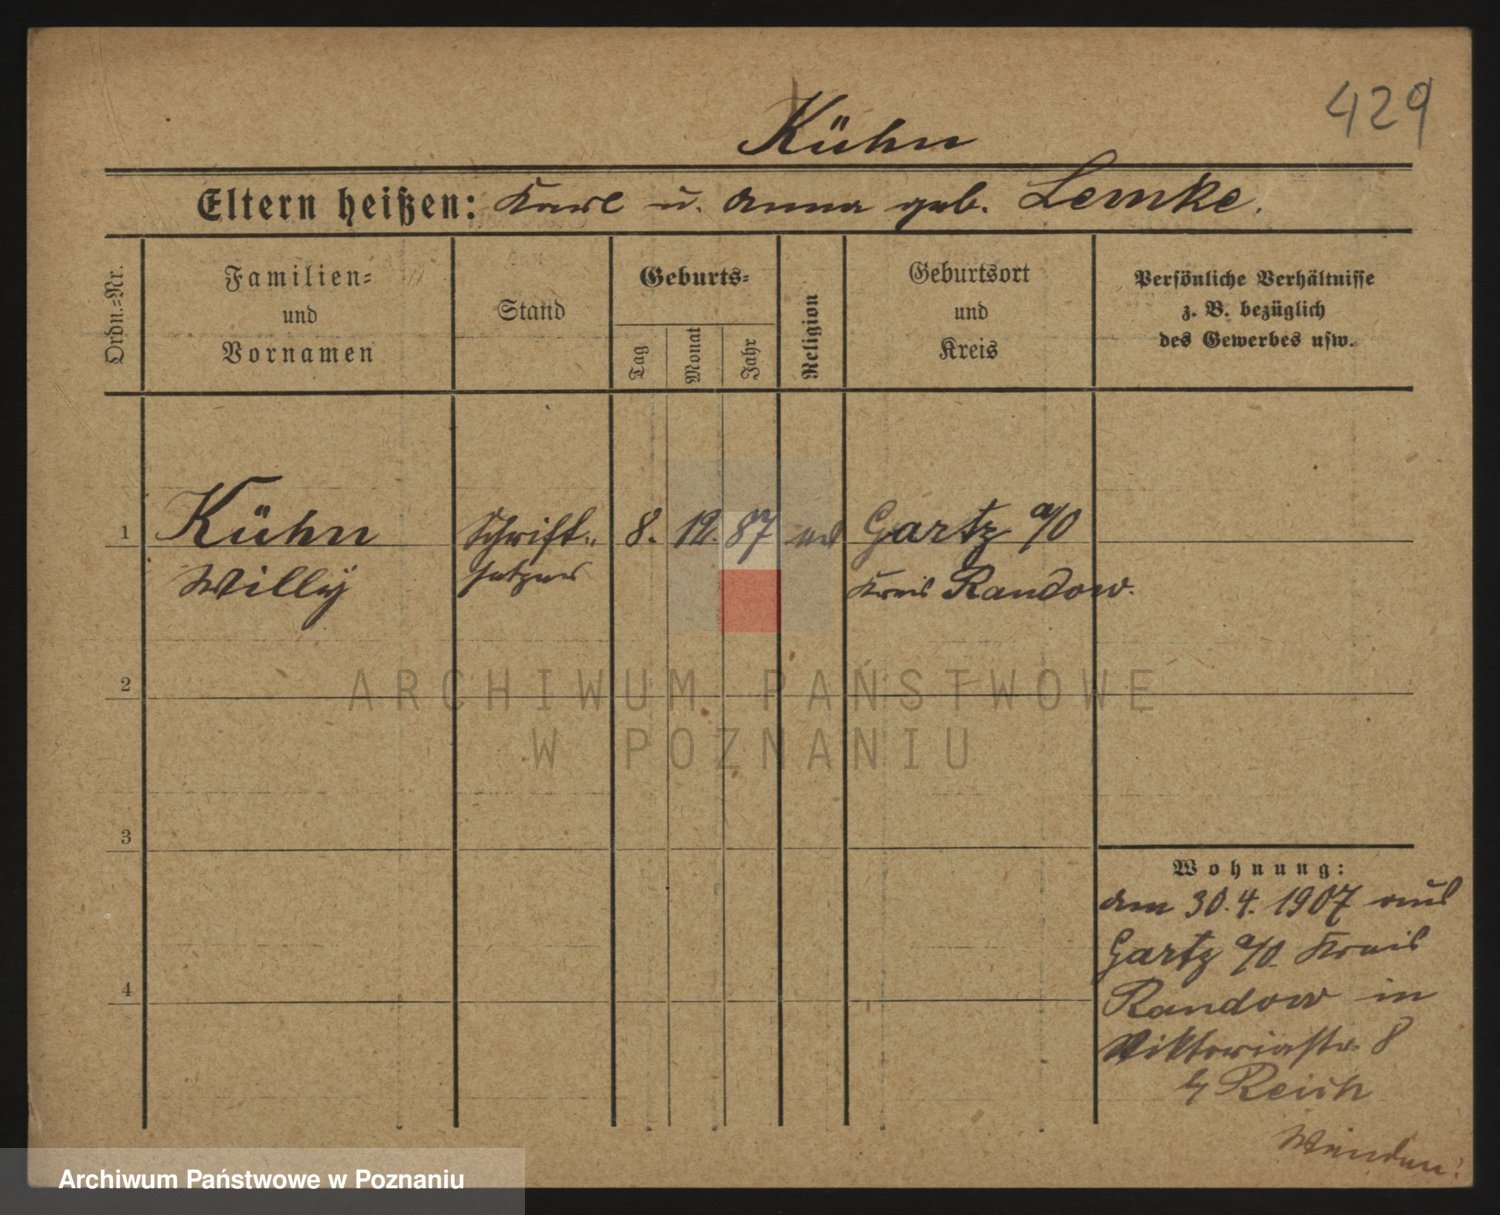 429
Kühn
Eltern heißen: Karl u. Anna geb. Lemke.
Ordn.-Nr.
Familien-
und
Vornamen
Stand
Geburts-
Tag
Monat
Jahr
Religion
Geburtsort
und
Kreis
Persönliche Verhältnisse
z. B. bezüglich
des Gewerbes usw.
1 Kühn Schrift- 8. 12. 87 ev Gartz a/O
Willy setzer Kreis Randow.
2
ARCHIWUM PAŃSTWOWE
W POZNANIU
3
4
Wohnung:
am 30. 4. 1907 aus
Gartz a/O. Kreis
Randow in
Viktoriastr. 8
b/ Reich
Wenden!
Archiwum Państwowe w Poznaniu